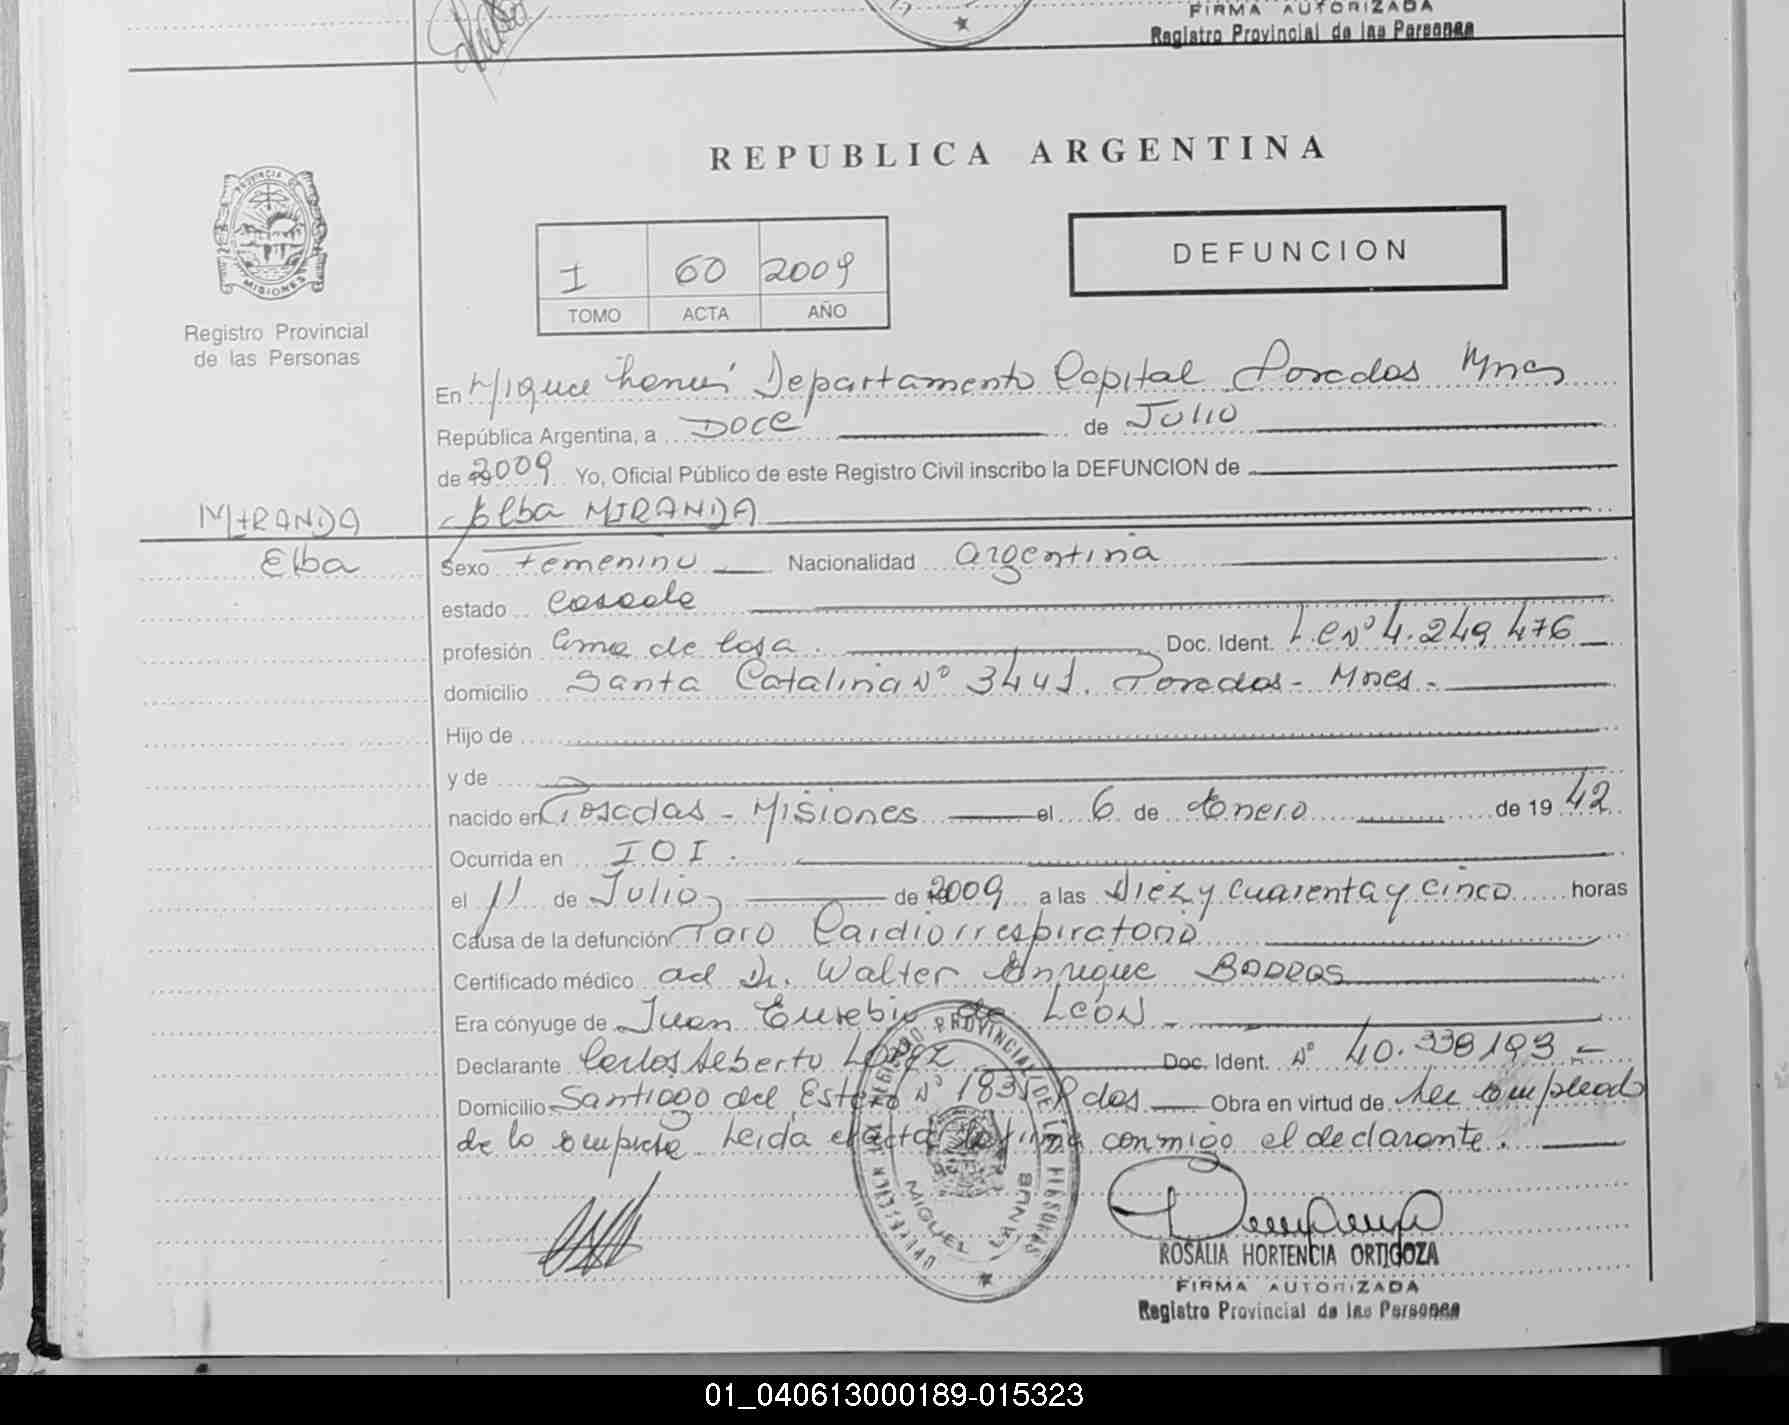 FIRMA AUTORIZADA
Registro Provincial de las Personas
REPUBLICA ARGENTINA
PROVINCIA DE
MISIONES
Registro Provincial
de las Personas
I 60 2009
TOMO ACTA AÑO
DEFUNCION
En Miguel Lanús Departamento Capital Posadas Mnes
República Argentina, a Doce de Julio
de 2009 Yo, Oficial Público de este Registro Civil inscribo la DEFUNCION de
MIRANDA
Elba
Elba MIRANDA
Sexo Femenino Nacionalidad argentina
estado Casada
profesión ama de casa. Doc. Ident. L.C Nº 4.249.476
domicilio Santa Catalina Nº 3441. Posadas - Mnes -
Hijo de
y de
nacido en Posadas - Misiones el 6 de Enero de 1942
Ocurrida en I O I.
el 11 de Julio de 2009 a las Diez y cuarenta y cinco horas
Causa de la defunción Paro Cardiorrespiratorio
Certificado médico del Dr. Walter Enrique
Era cónyuge de Juan Eusebio de LEÓN
Declarante Carlos Alberto López Doc. Ident. Nº 40.338193
Domicilio Santiago del Estero Nº 1835 Pdas Obra en virtud de ser empleado
de la empresa Leída el acta la firma conmigo el declarante.
REGISTRO PROVINCIAL DE LAS PERSONAS
MIGUEL LANUS
ROSALIA HORTENCIA ORTIGOZA
FIRMA AUTORIZADA
Registro Provincial de las Personas
01_040613000189-015323